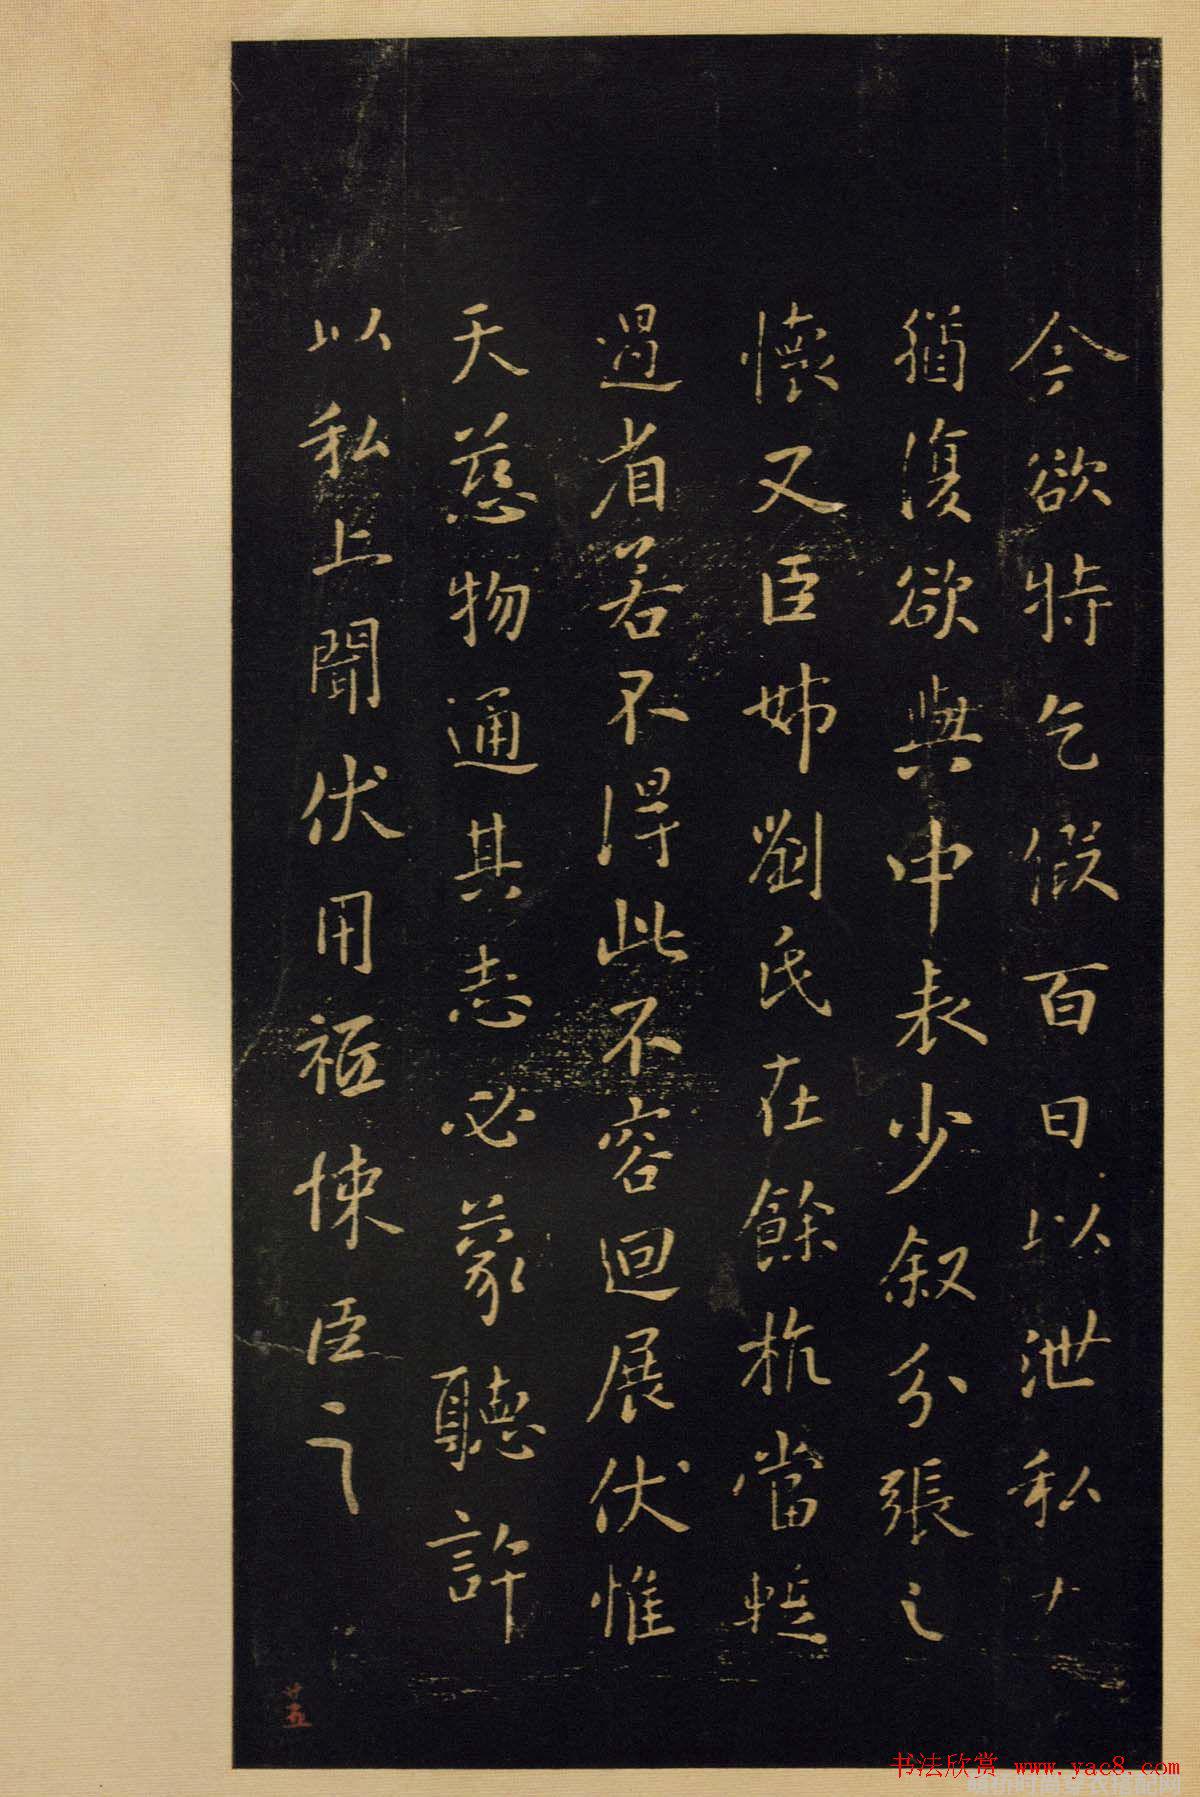 今欲特乞假百日以泄私
猶復欲與中表少叙分張之
懷又臣姊劉氏在餘杭當暫
過省若不得此不容迴展伏惟
天慈物通其志必蒙聽許
以私上聞伏用祗悚臣之
书法欣赏 www.yac8.com